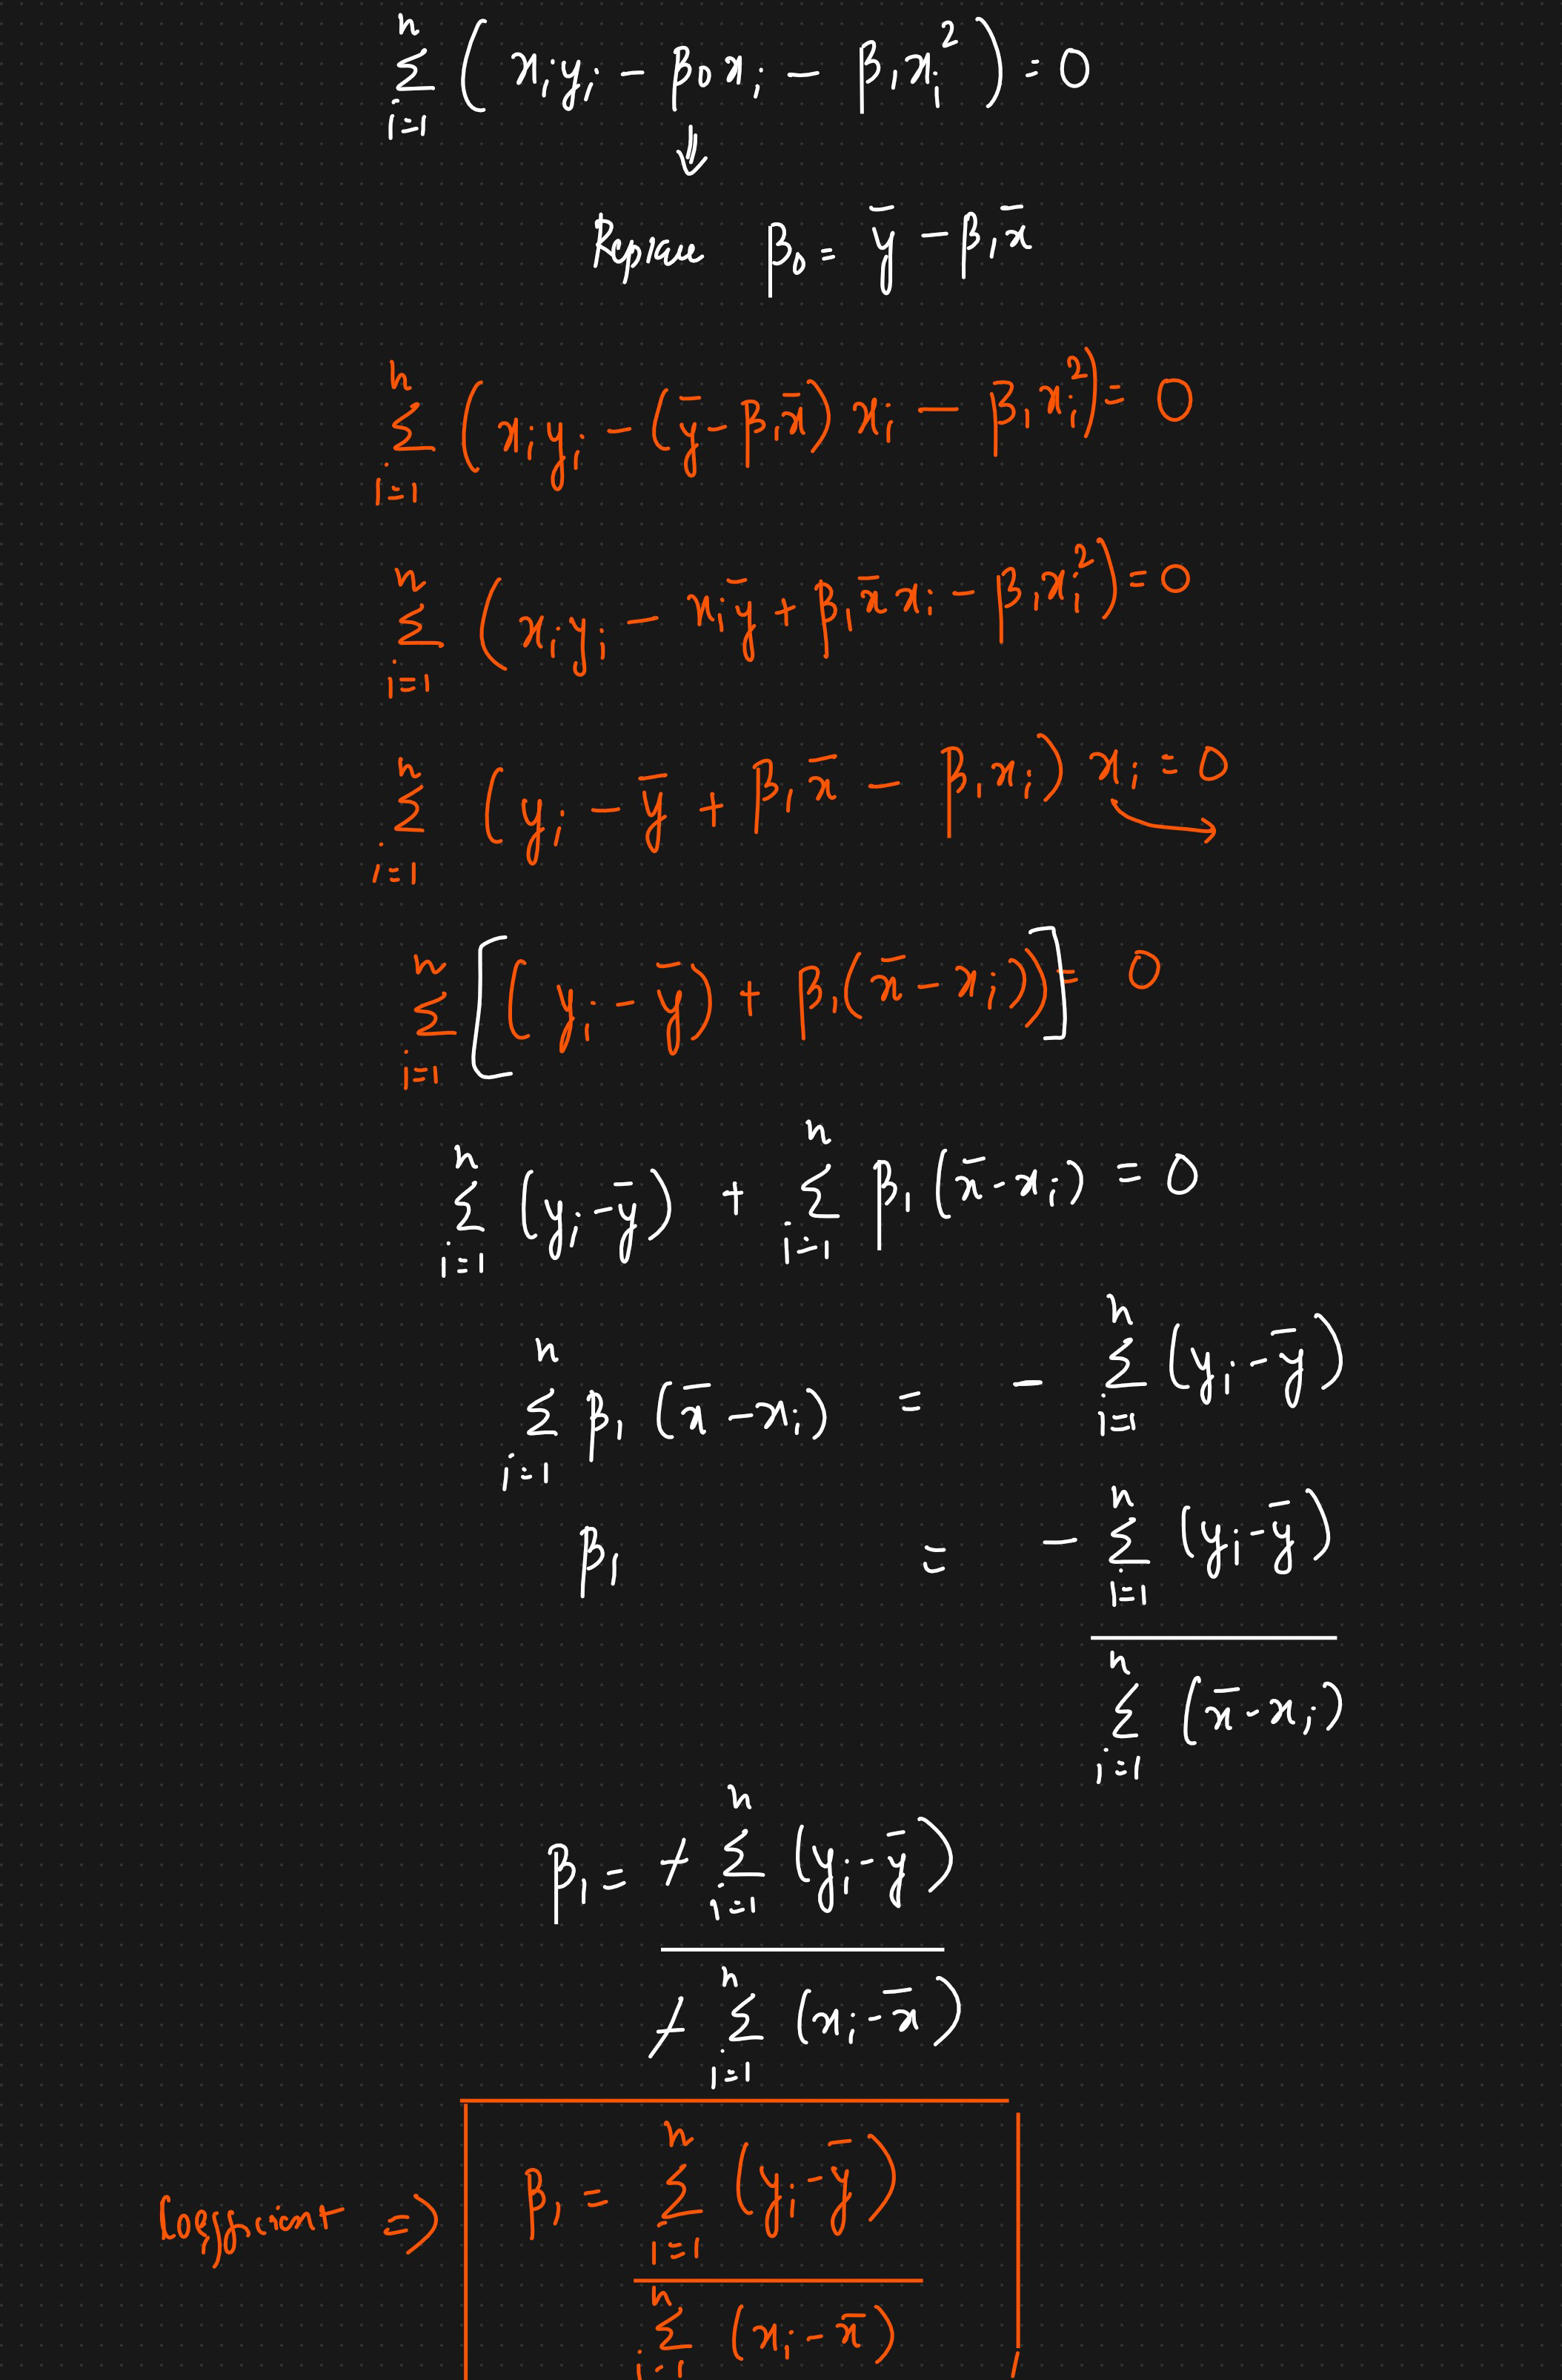 ∑_{i=1}^{n} ( x_i y_i − β_0 x_i − β_1 x_i^2 ) = 0
⇓
Replace β_0 = ȳ − β_1 x̄
∑_{i=1}^{n} ( x_i y_i − (ȳ − β_1 x̄) x_i − β_1 x_i^2 ) = 0
∑_{i=1}^{n} ( x_i y_i − x_i ȳ + β_1 x̄ x_i − β_1 x_i^2 ) = 0
∑_{i=1}^{n} ( y_i − ȳ + β_1 x̄ − β_1 x_i ) x_i = 0
∑_{i=1}^{n} [ ( y_i − ȳ ) + β_1 ( x̄ − x_i ) ) ] = 0
∑_{i=1}^{n} ( y_i − ȳ ) + ∑_{i=1}^{n} β_1 ( x̄ − x_i ) = 0
∑_{i=1}^{n} β_1 ( x̄ − x_i ) = − ∑_{i=1}^{n} ( y_i − ȳ )
β_1 = − ∑_{i=1}^{n} ( y_i − ȳ ) / ∑_{i=1}^{n} ( x̄ − x_i )
β_1 = − ∑_{i=1}^{n} ( y_i − ȳ ) / − ∑_{i=1}^{n} ( x_i − x̄ )
Coefficient ⇒ β_1 = ∑_{i=1}^{n} ( y_i − ȳ ) / ∑_{i=1}^{n} ( x_i − x̄ )